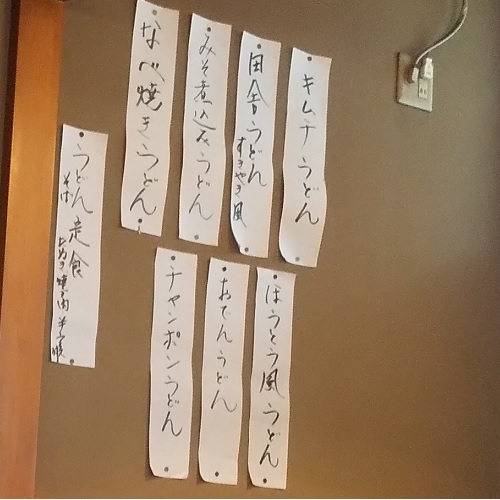 キムチうどん
田舎うどん
すきやき風
みそ煮込みうどん
なべ焼きうどん
ほうとう風うどん
おでんうどん
チャンポンうどん
うどん定食
そば